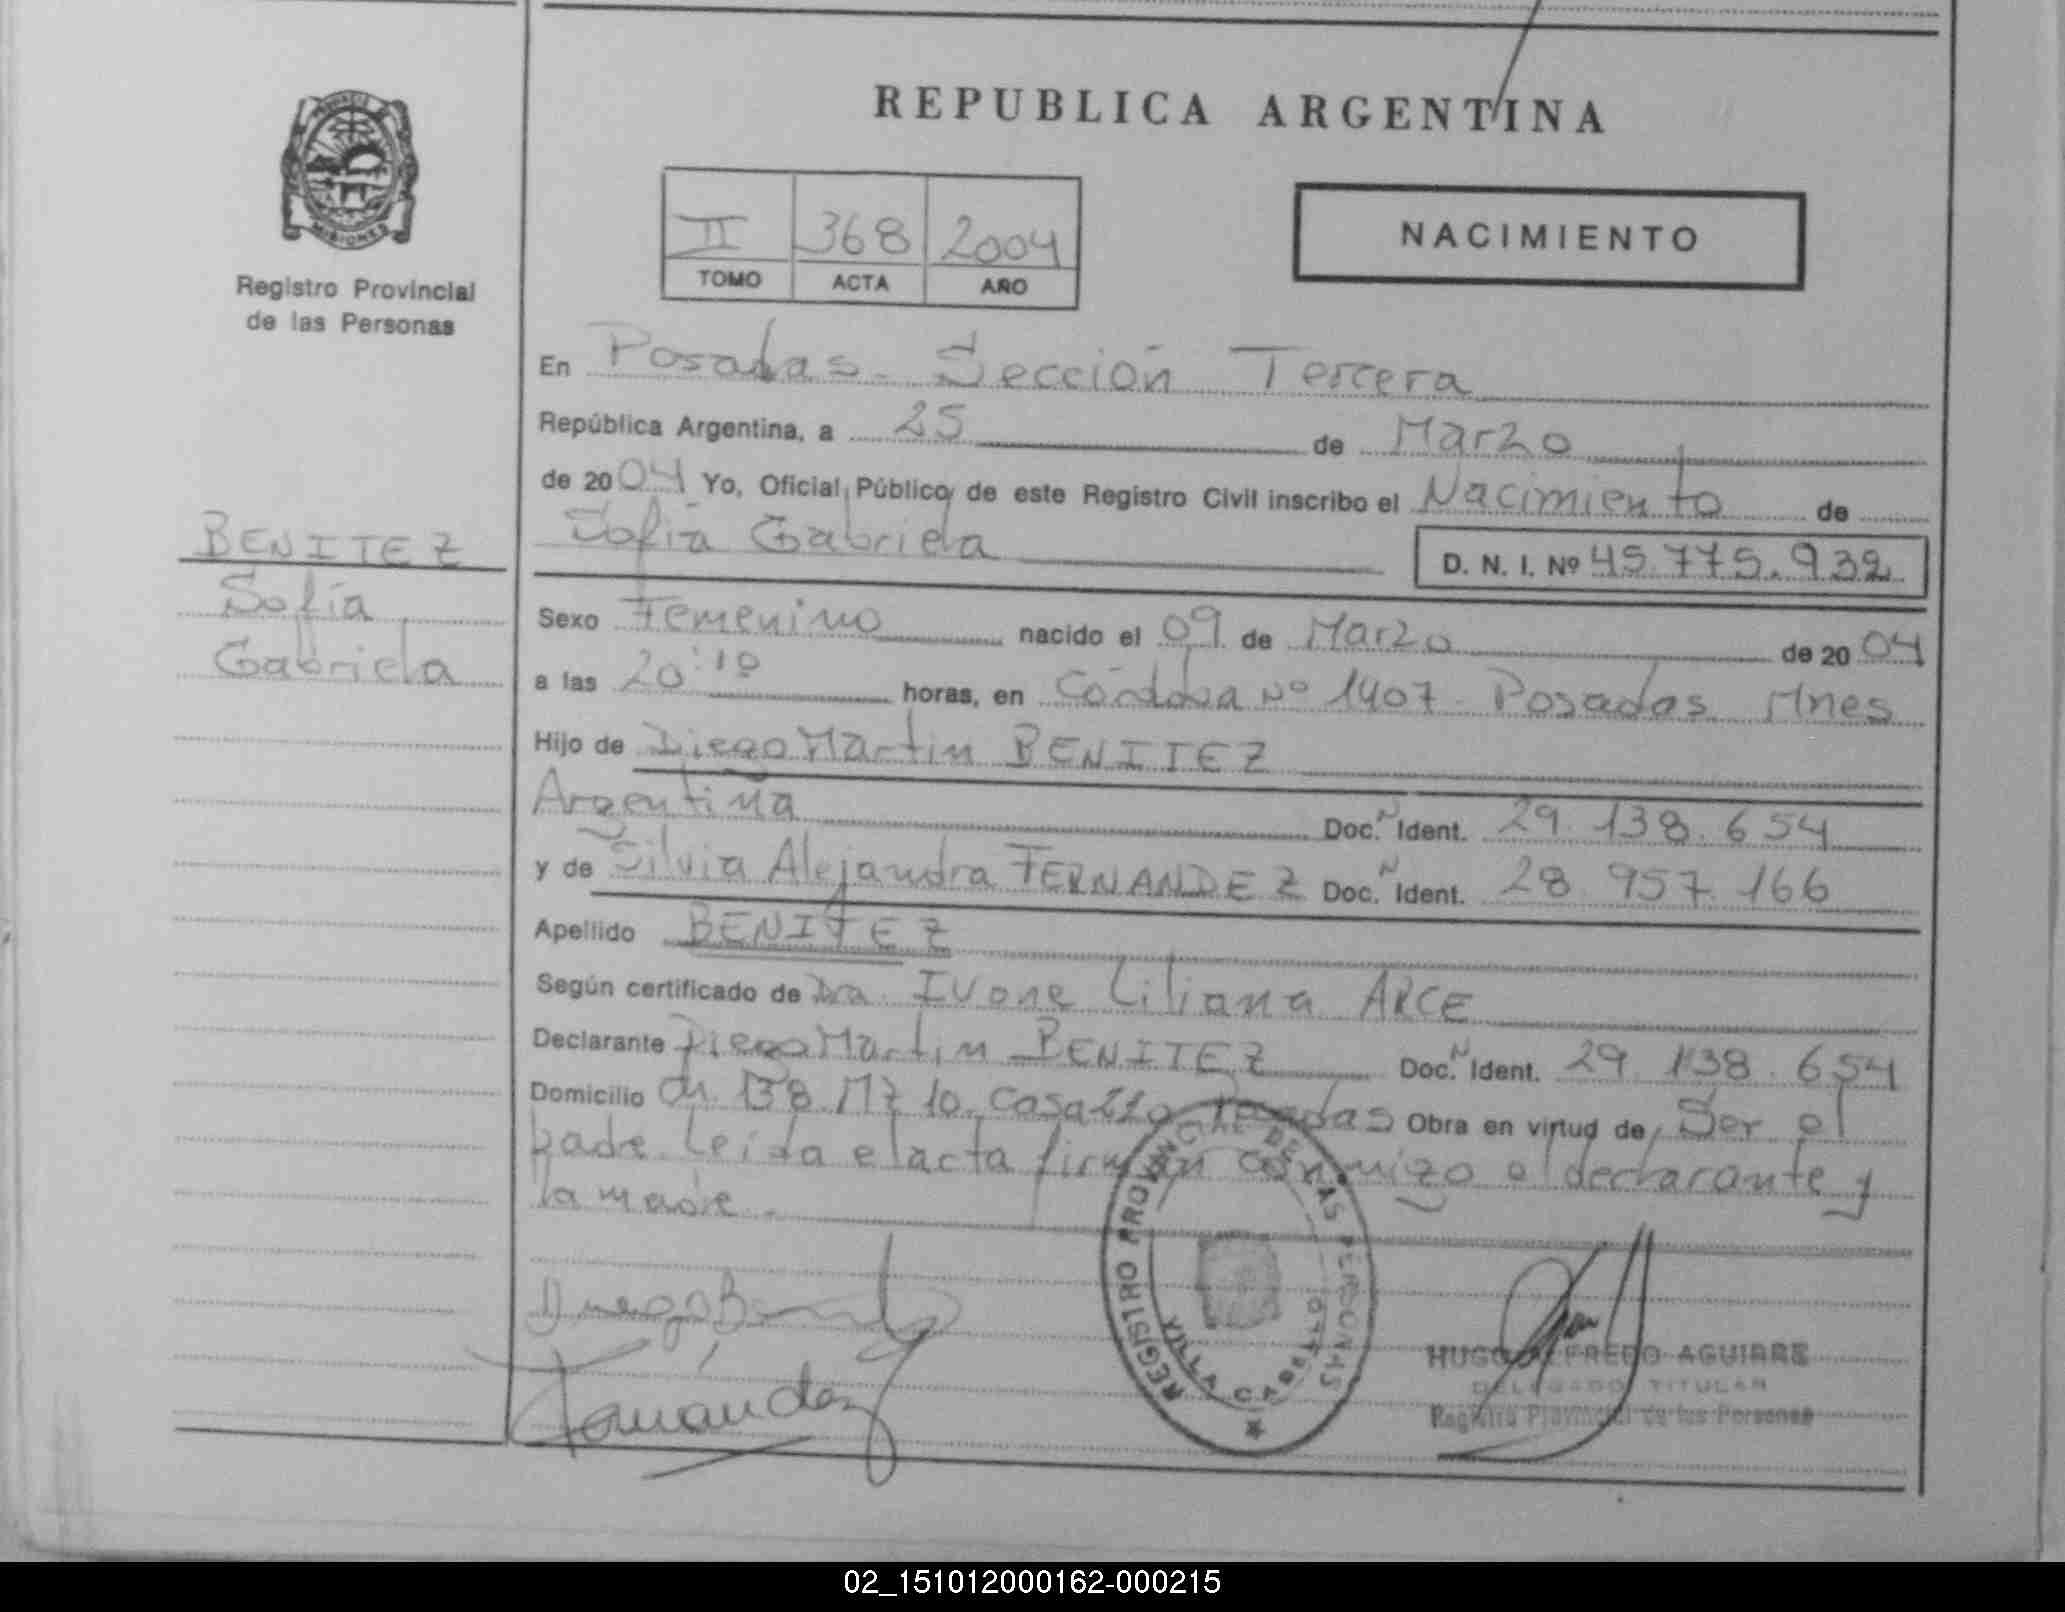 REPUBLICA ARGENTINA
MISIONES
Registro Provincial
de las Personas
II 368 2004
TOMO ACTA AÑO
NACIMIENTO
En Posadas - Sección Tercera
República Argentina, a 25 de Marzo
de 2004 Yo, Oficial Público de este Registro Civil inscribo el Nacimiento de
Sofía Gabriela D. N. I. Nº 45.775.932
BENITEZ
Sofía
Gabriela
Sexo Femenino nacido el 09 de Marzo de 2004
a las 20:10 horas, en Córdoba Nº 1407 - Posadas Mnes
Hijo de Diego Martín BENITEZ
Argentina Doc. N Ident. 29.138.654
y de Silvia Alejandra FERNANDEZ Doc. N Ident. 28.957.166
Apellido BENITEZ
Según certificado de Dra. Ivone Liliana ARCE
Declarante Diego Martín BENITEZ Doc. N Ident. 29.138.654
Domicilio Ch. 138 Mz 10 Casa Posadas Obra en virtud de Ser el
padre. Leída el acta firman conmigo el declarante y
la madre.
Fernández
REGISTRO PROVINCIAL DE LAS PERSONAS
VILLA
HUGO ALFREDO AGUIRRE
DELEGADO TITULAR
Registro Provincial de las Personas
02_151012000162-000215